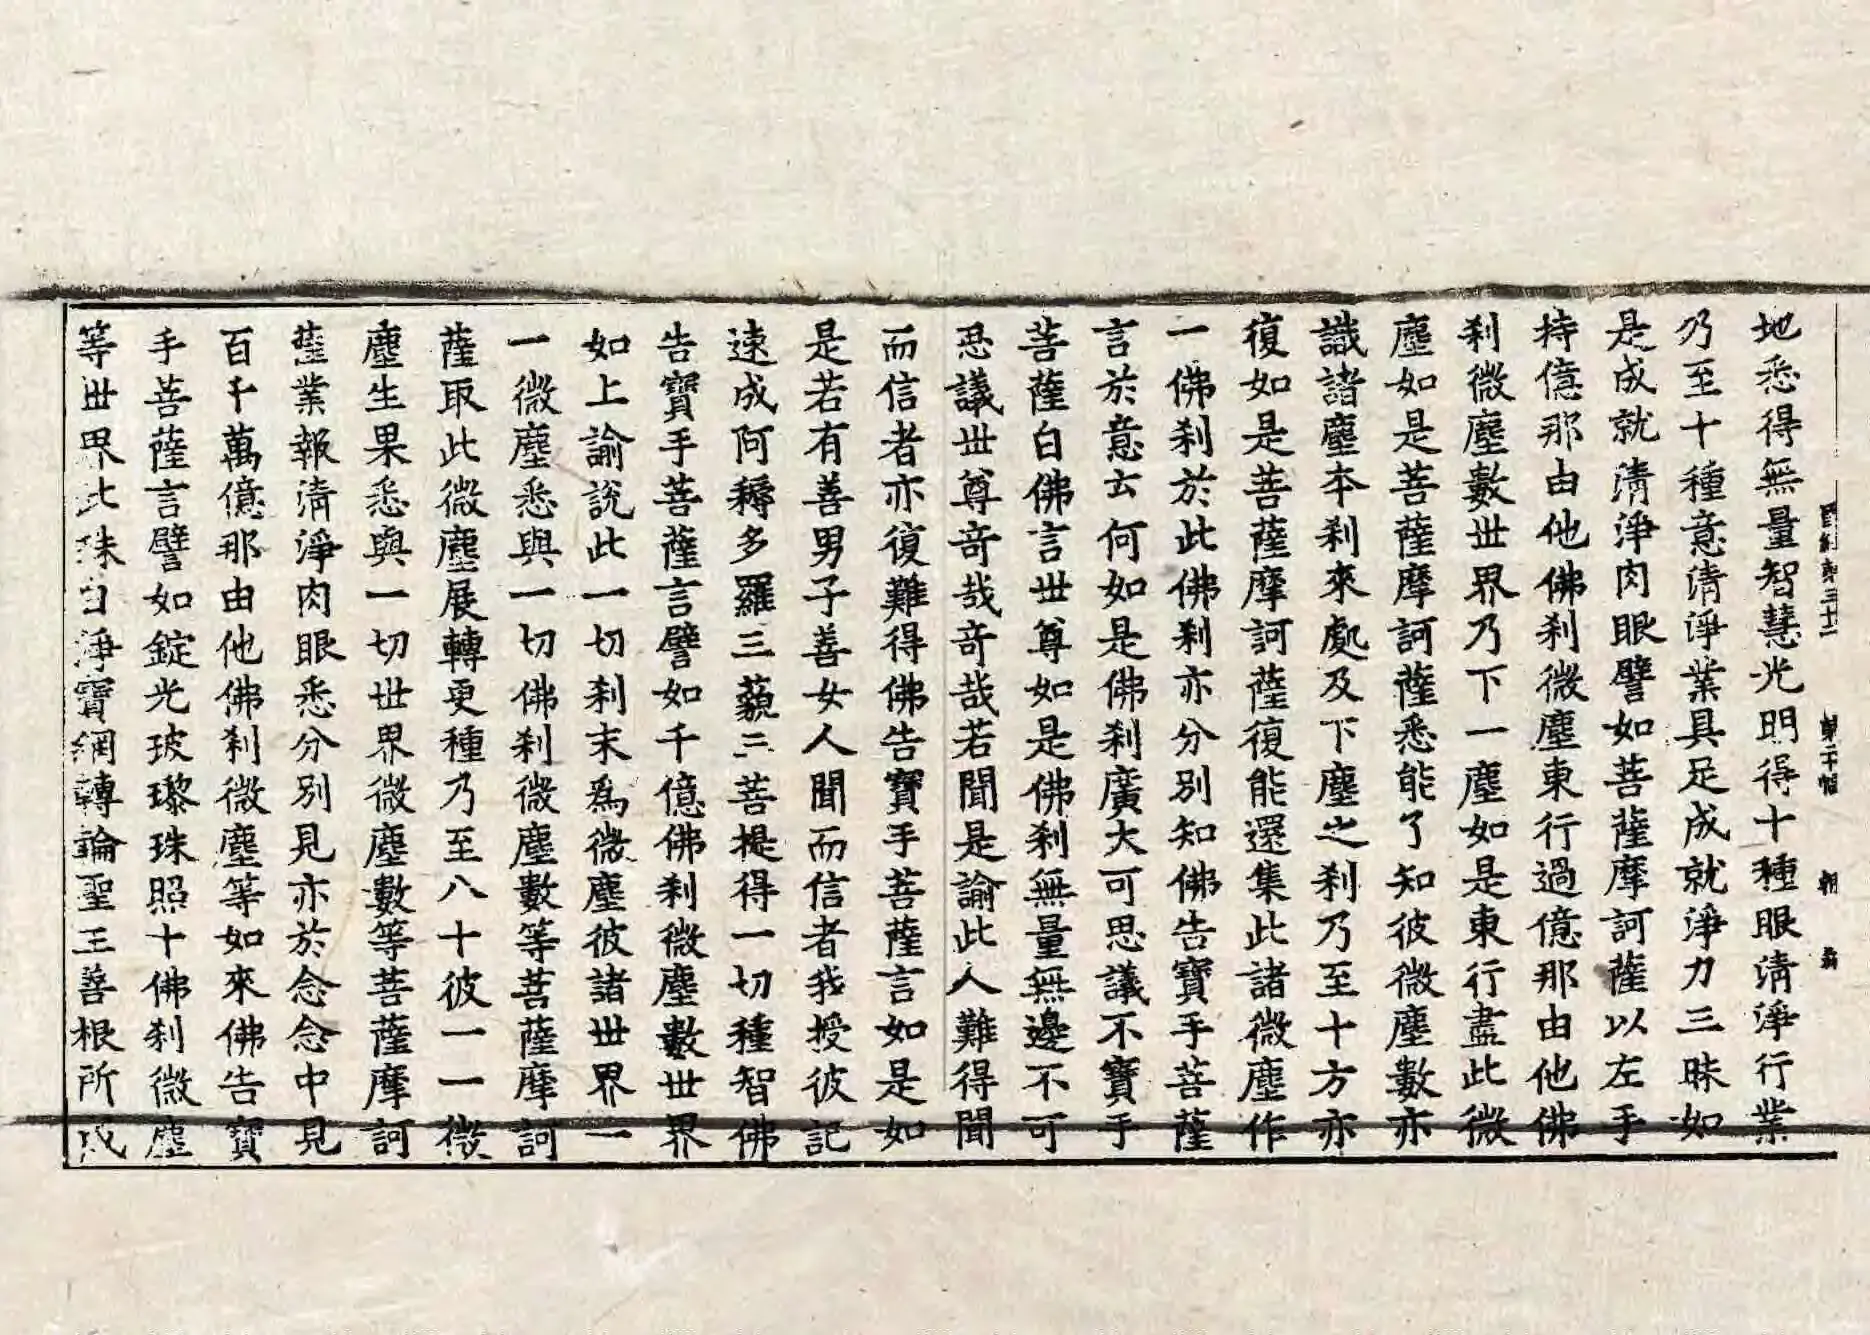 晋經第三十二　第二十幅　朝
地悉得無量智慧光明得十種眼清淨行業
乃至十種意清淨業具足成就淨力三昧如
是成就清淨肉眼譬如菩薩摩訶薩以左手
持億那由他佛刹微塵東行過億那由他佛
刹微塵數世界乃下一塵如是東行盡此微
塵如是菩薩摩訶薩悉能了知彼微塵數亦
識諸塵本刹來處及下塵之刹乃至十方亦
復如是菩薩摩訶薩復能還集此諸微塵作
一佛刹於此佛刹亦分別知佛告寶手菩薩
言於意云何如是佛刹廣大可思議不寶手
菩薩白佛言世尊如是佛刹無量無邊不可
思議世尊奇哉奇哉若聞是諭此人難得聞
而信者亦復難得佛告寶手菩薩言如是如
是若有善男子善女人聞而信者我授彼記
速成阿耨多羅三藐三菩提得一切種智佛
告寶手菩薩言譬如千億佛刹微塵數世界
如上諭說此一切刹末為微塵彼諸世界一
一微塵悉與一切佛刹微塵數等菩薩摩訶
薩取此微塵展轉更種乃至八十彼一一微
塵生果悉與一切世界微塵數等菩薩摩訶
薩業報清淨肉眼悉分別見亦於念念中見
百千萬億那由他佛刹微塵等如來佛告寶
手菩薩言譬如錠光玻瓈珠照十佛刹微塵
等世界此珠白淨寶網轉論聖王善根所成